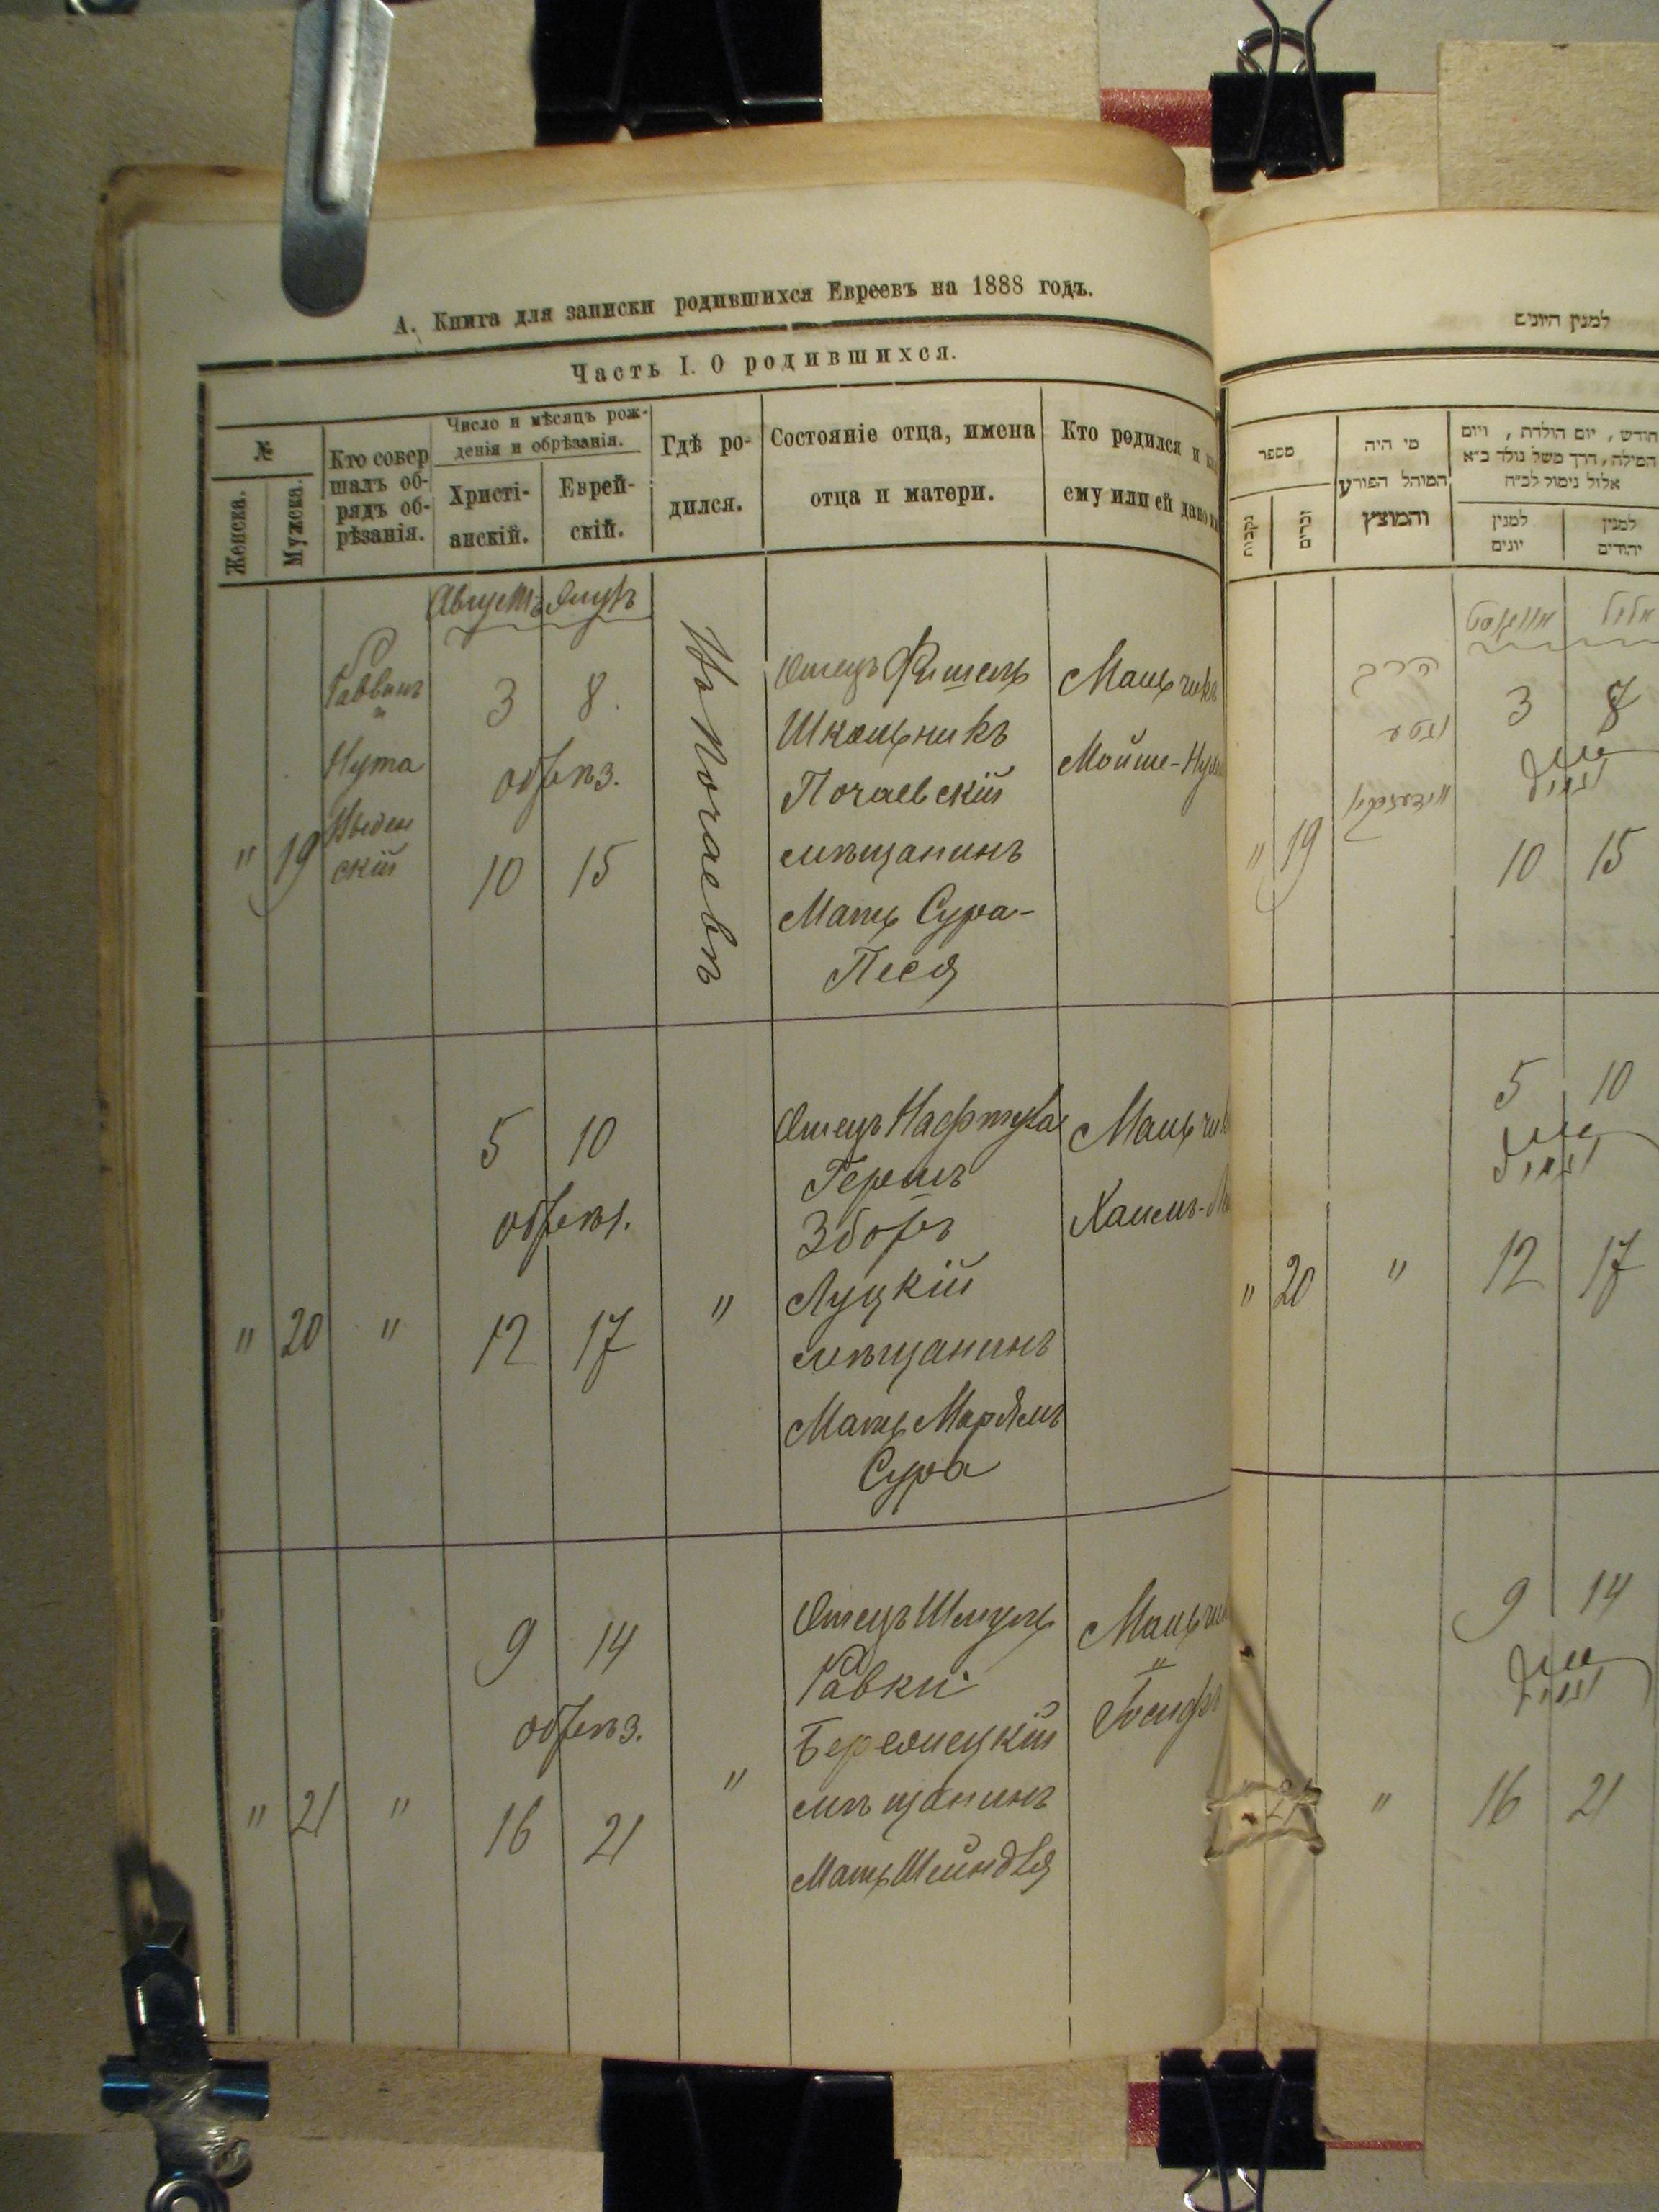 А. Книга для записки родившихся Евреевъ на 1888 годъ.
Часть I. О родившихся.
№
Женска.
Мужска.
Кто совер
шалъ об-
рядъ об-
рѣзанія.
Число и мѣсяцъ рож-
денія и обрѣзанія.
Христі-
анскій.
Еврей-
скій.
Гдѣ ро-
дился.
Состояніе отца, имена
отца и матери.
Кто родился и
ему или ей дано
Августъ
" 19
Раввинъ
Нута
скій
3 8.
обрѣз.
10 15
Въ Почаевѣ
Отецъ Фишель
Школьникъ
Почаевскій
мѣщанинъ
Мать Сура-
Песя
Мальчикъ
Мойше-
" 20 "
5 10
обрѣз.
12 17
"
Отецъ Нафтула
Гершъ
Зборъ
Луцкій
мѣщанинъ
Мать Марьямъ
Сура
Хаимъ-
" 21 "
9 14
обрѣз.
16 21
"
Отецъ Шмуль
Равки
мѣщанинъ
Мать Шейндля
Іосифъ
למנין היונים
מספר
נקבות
זכרים
מי היה
המוהל הפורע
והמוצץ
חודש, יום הולדת, ויום
המילה, דרך משל נולד כ״א
אלול נימול לכ״ח
למנין
יונים
למנין
יהודים
אלול
" 19
הרב
נטע
3
10 15
5 10
" 20 "
12 17
9 14
21 "
16 21